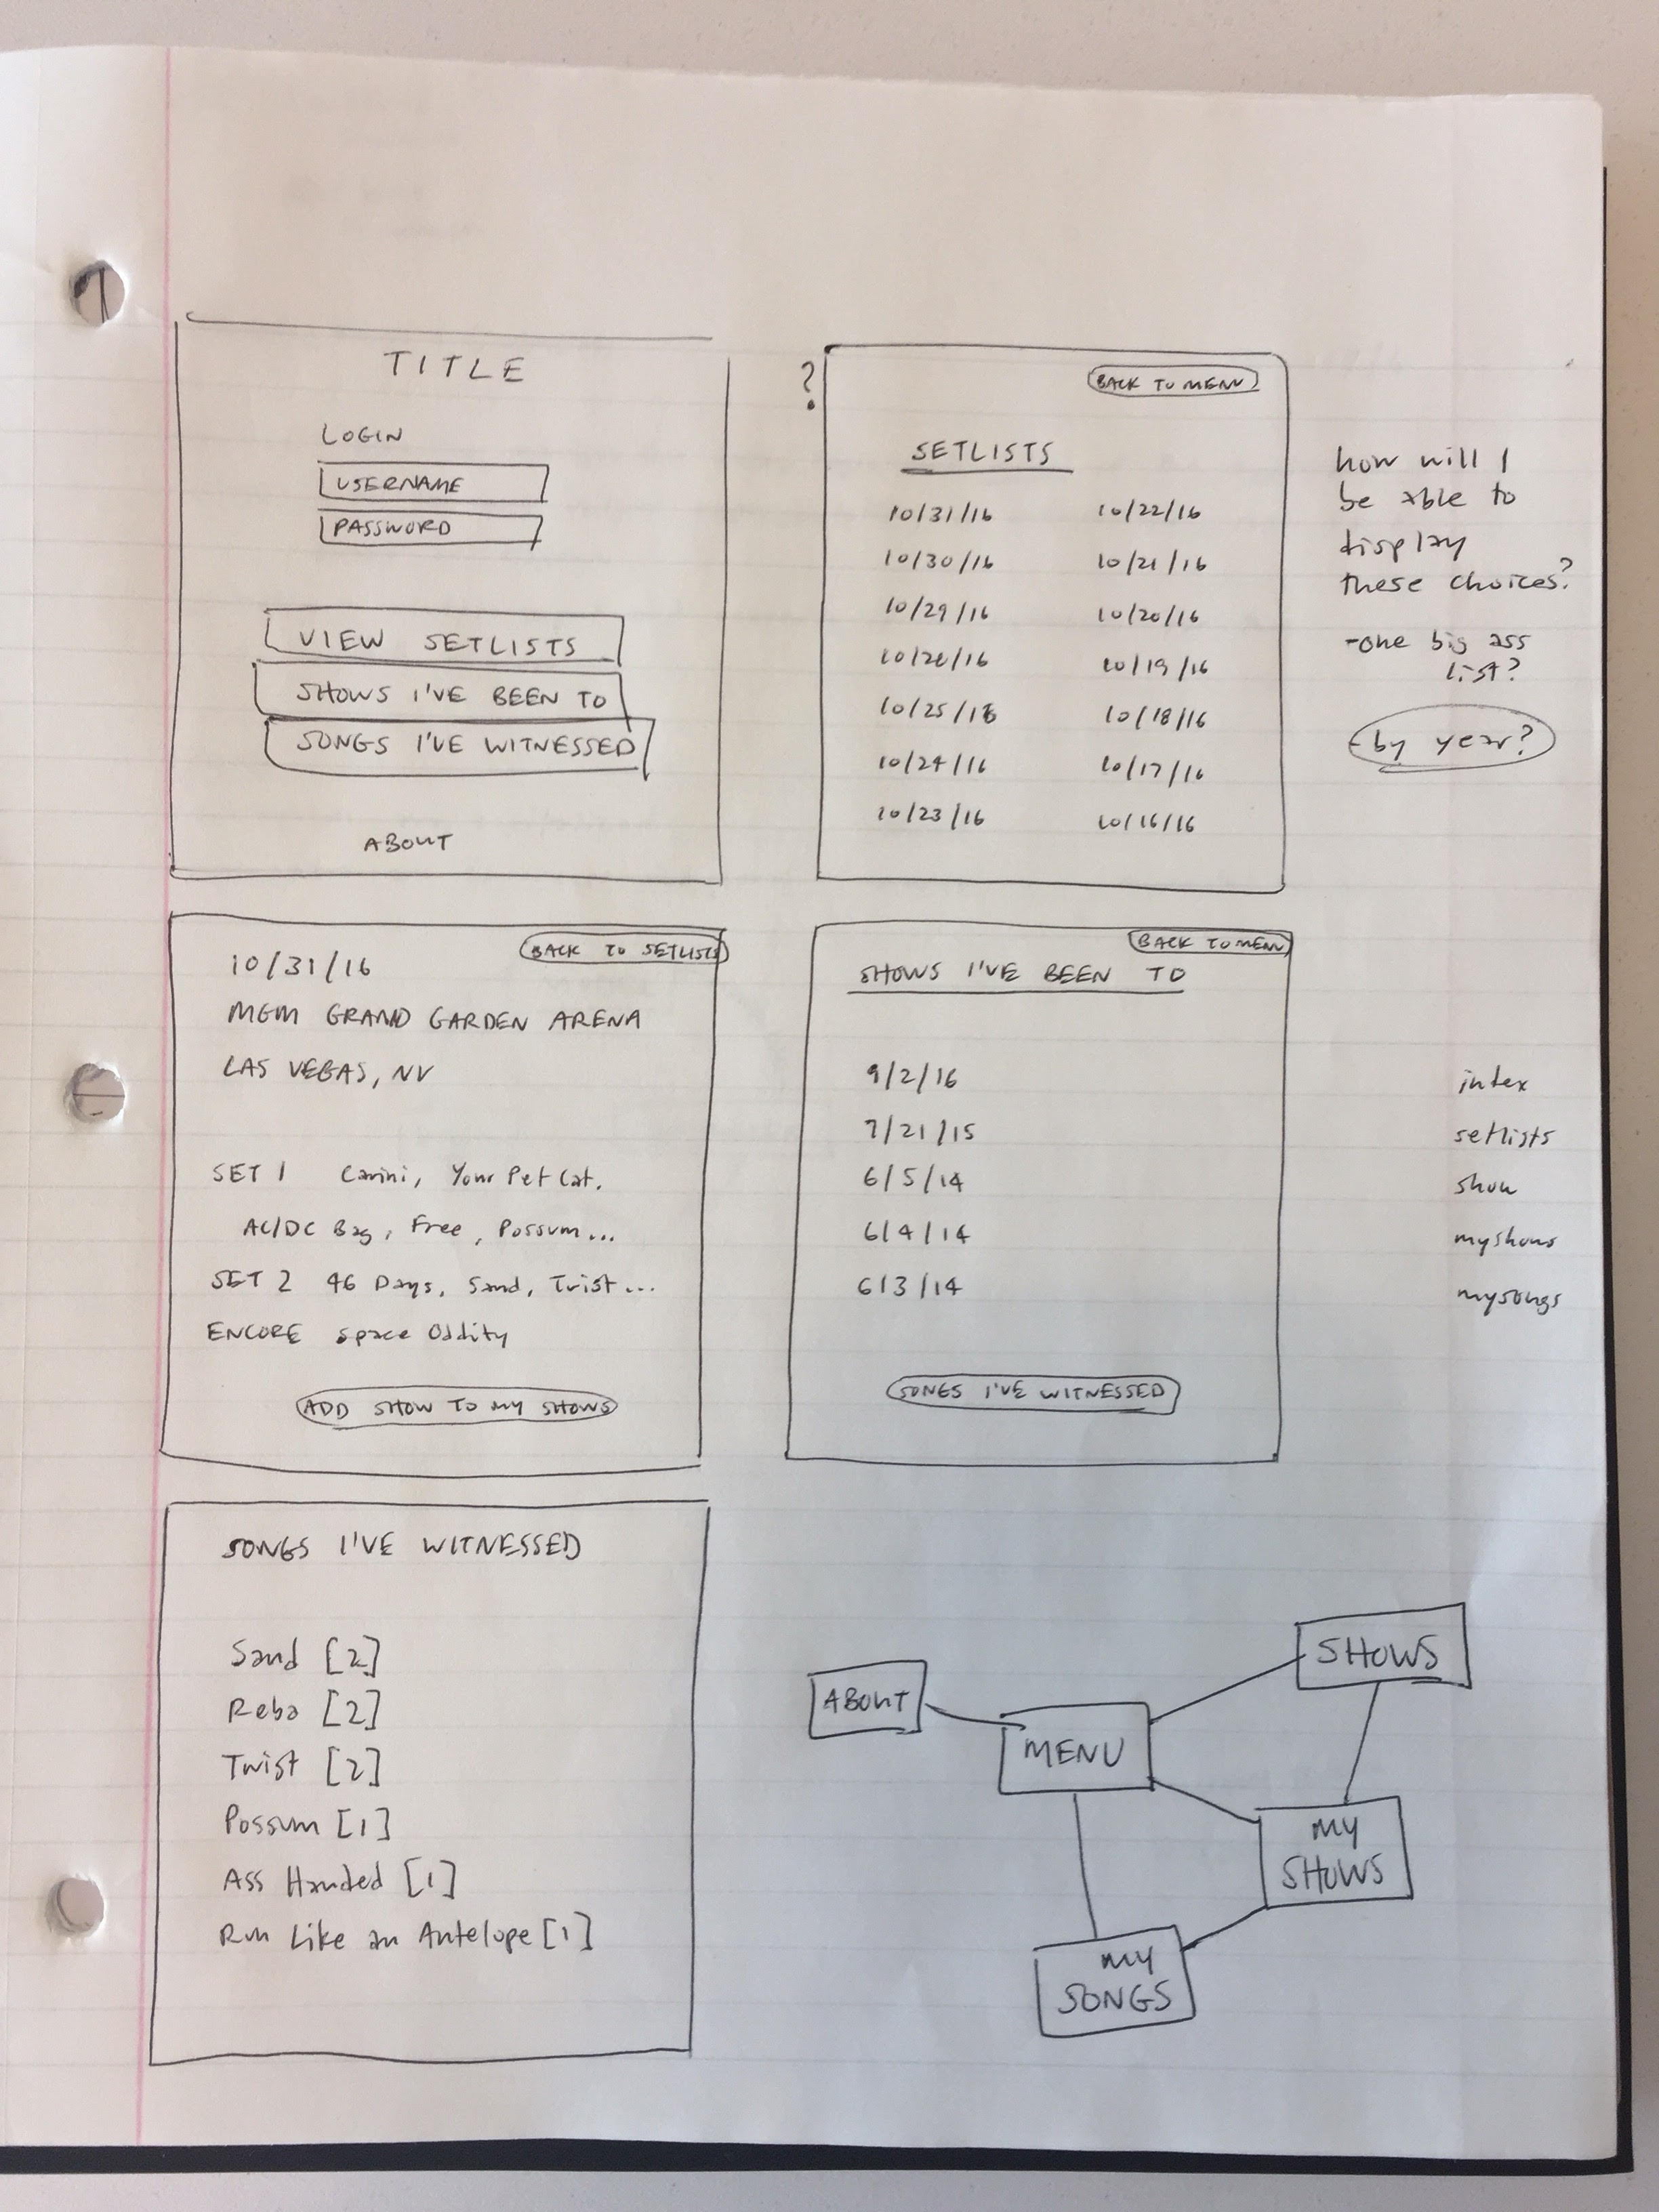 TITLE
LOGIN
USERNAME
PASSWORD
VIEW SETLISTS
SHOWS I'VE BEEN TO
SONGS I'VE WITNESSED
ABOUT
?
BACK TO MENU
SETLISTS
10/31/16 10/22/16
10/30/16 10/21/16
10/29/16 10/20/16
10/19/16
10/25/16 10/18/16
10/24/16 10/17/16
10/23/16 10/16/16
how will I
be able to
display
these choices?
-one big ass
list?
-by year?
BACK TO SETLISTS
10/31/16
MGM GRAND GARDEN ARENA
LAS VEGAS, NV
SET 1 Carini, Your Pet Cat.
AC/DC Bag, Free, Possum...
SET 2 46 Days, Sand, Twist...
ENCORE Space Oddity
ADD SHOW TO MY SHOWS
BACK TO MENU
SHOWS I'VE BEEN TO
9/2/16
7/21/15
6/5/14
6/4/14
6/3/14
SONGS I'VE WITNESSED
index
setlists
show
myshows
mysongs
SONGS I'VE WITNESSED
Sand [2]
Reba [2]
Twist [2]
Possum [1]
Ass Handed [1]
Run Like an Antelope [1]
SHOWS
ABOUT
MENU
MY
SHOWS
MY
SONGS